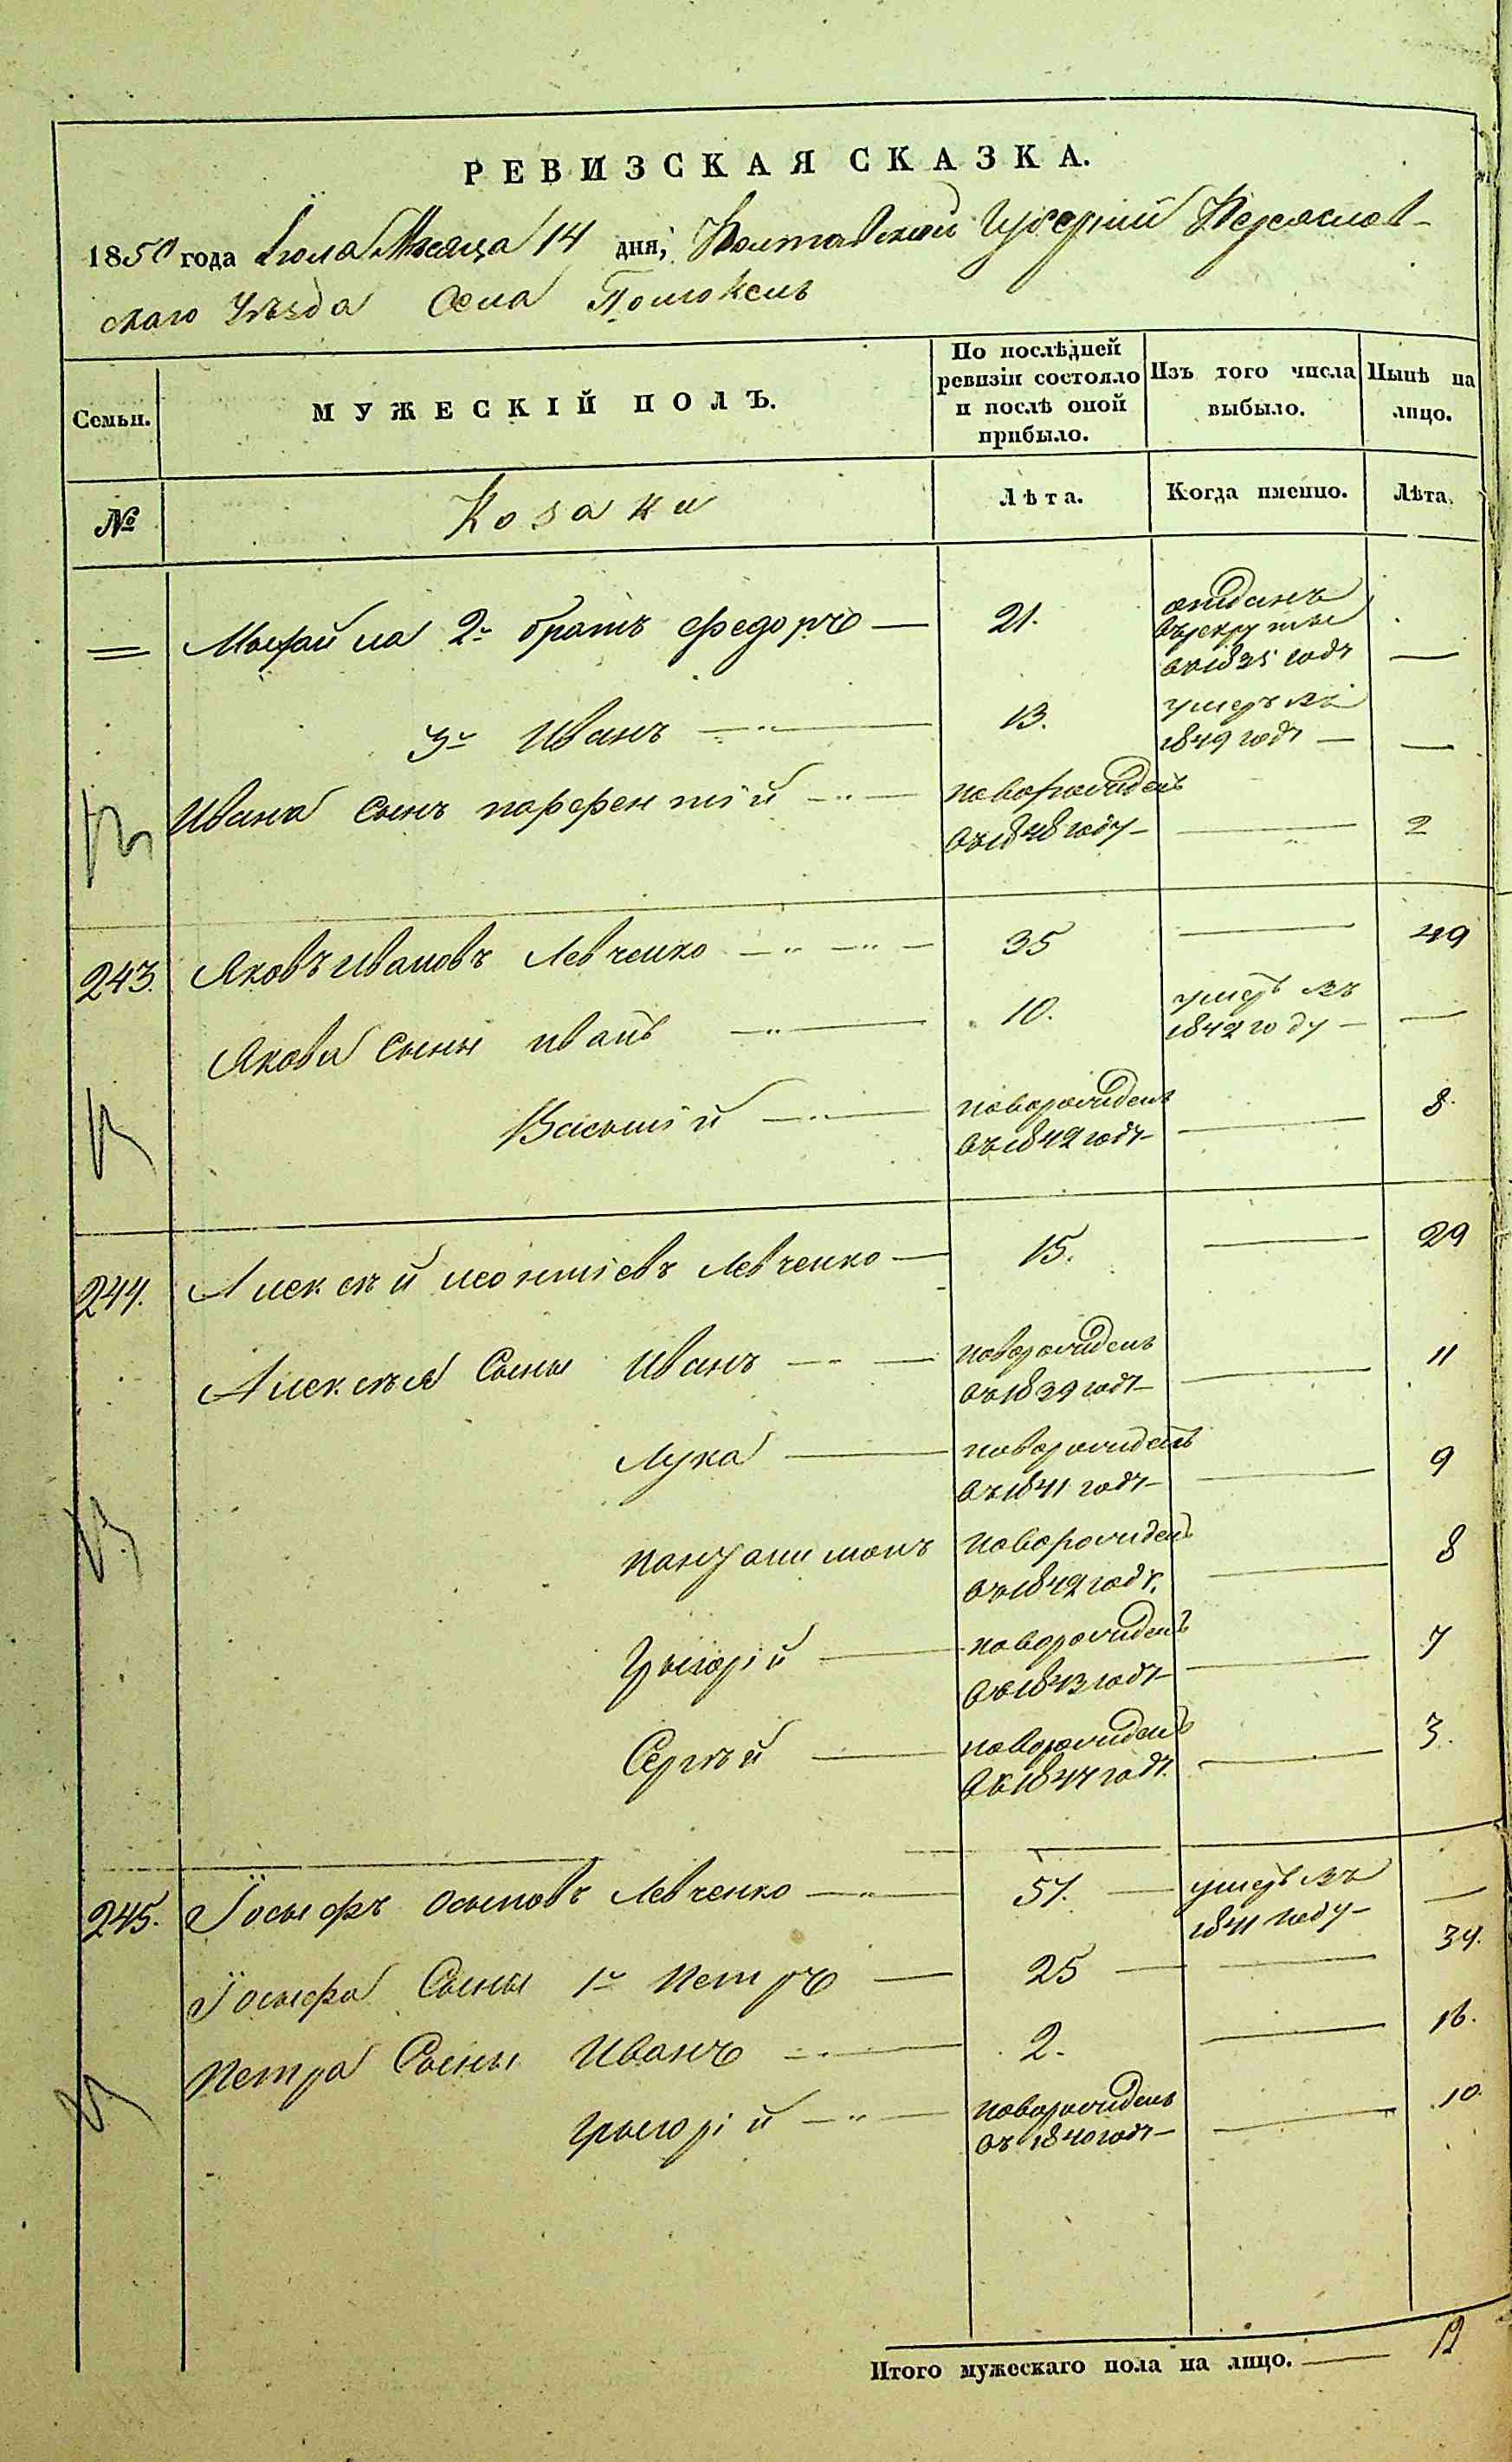 РЕВИЗСКАЯ СКАЗКА.
1850 года Июля Месяца 14 дня, Полтавской Губернiи Переяслов-
скаго Уѣзда Села Помоклъ
Семьи. МУЖЕСКІЙ ПОЛЪ. По послѣдней ревизіи состояло и послѣ оной прибыло. Изъ того числа выбыло. Нынѣ на лицо.
№ Козаки Лѣта. Когда именно. Лѣта.
Михайла 2й братъ Федоръ — 21. отданъ въ рекруты въ 1835 годѣ —
3й Иванъ — 13. умеръ въ 1849 годѣ — —
Ивана сынъ парфентій — новорожденъ въ 1848 году — — 2
243. Яковъ Ивановъ Левченко — 35 — 49
Якова сыны иванъ — 10. умеръ въ 1842 году — —
Василій — новорожденъ въ 1842 годѣ — — 8.
244. Алексѣй леонтіевъ Левченко — 15. — 29
Алексѣя Сыны Иванъ — новорожденъ въ 1839 годѣ — — 11
Лука — новорожденъ въ 1841 годѣ — — 9
пантилимонъ новорожденъ въ 1842 годѣ. — 8
Григорій — новорожденъ въ 1843 годѣ — — 7
Сергѣй — новорожденъ въ 1847 годѣ. — 3.
245. Іосифъ осиповъ Левченко — 57. — умеръ въ 1841 году — —
Іосифа Сыны 1й Петръ — 25 — — 39.
Петра Сыны Иванъ — 2. — 16.
григорій — новорожденъ въ 1840 годѣ — — 10.
Итого мужескаго пола на лицо. — 12